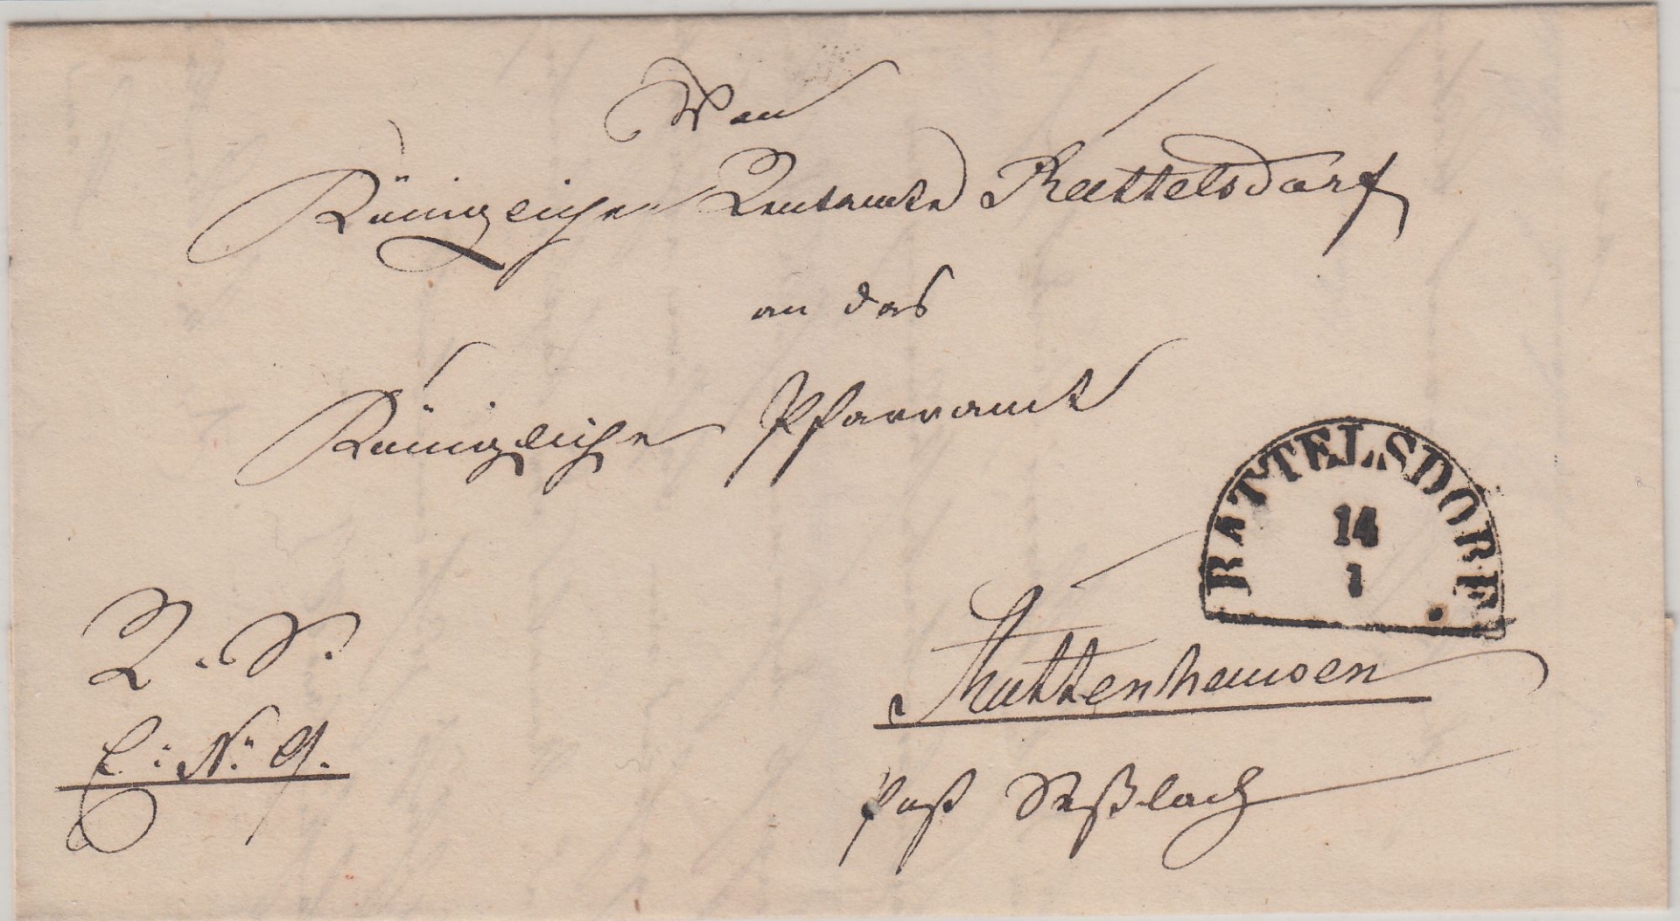 Von
Königlichen Rentamte Rattelsdorf
an das
Königliche Pfarramt
RATTELSDORF
14
1
R. S.
Auttenhausen
E: No: 9.
Post Seßlach